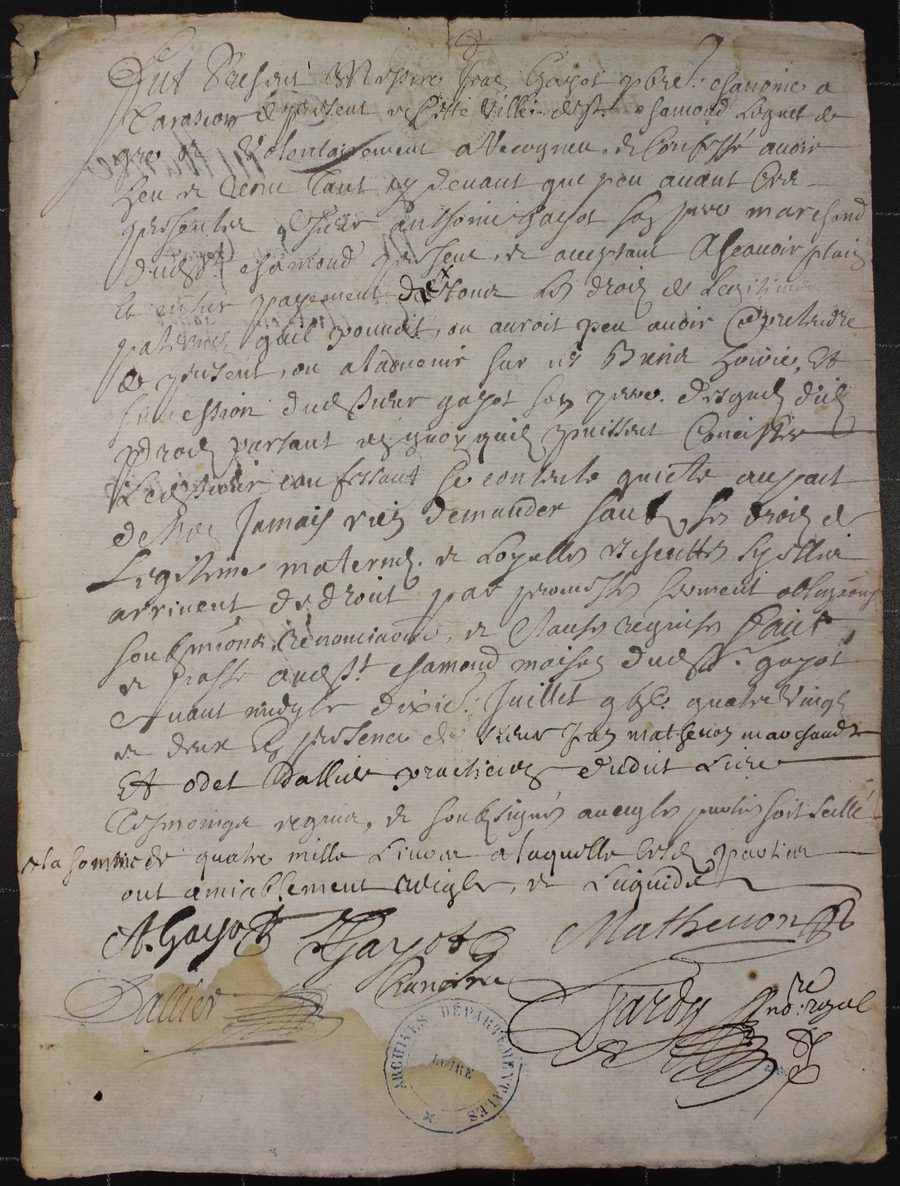 Fut Present Messire Gayot pbre. chanoine a
de present en cette ville de St. chamond Lequel de
gre et volontairement a Recogneu & Confessé avoir
heu & Receu tant cy devant que peu avant ces
presentes de sieur anthoine gayot son pere marchand
dud St chamond present, & acceptant Ascavoir plain
et entier payement de tous les droits de Legitime
paternels quil pouvoit, ou auroit peu avoir & pretendre
de present, ou a ladvenir sur les Biens hoirie, et
succession dud sieur gayot son pere. desquels dits
droits partant en quoy quils puissent Consister
Led sieur confessant se contente quicte au pait
de nen Jamais rien demander sauf ses droits de
Legitime maternel. & Loyalles escheuttes sy elles
arrivent de droit par promesses serment obligaons
soubmions, Renonciaons, & clauses requises Faict
& passé aud St. chamond maison dud Sr. gayot
avant midy le dixie. Juillet gbjc. quatre vingt
& deux En presence de sieur Jan matheuon marchand
Et odet Dallier practicien dudit Lieu
Tesmoings requis, & soubsignés avec les parties soit seellé
x la somme de quatre mille Livres a laquelle lesd parties
ont amiablement reiglé, & Liquidé
A. Gayot Gayot Matheuon
Chanoine
Dallier Tardy nore royal
ARCHIVES DÉPARTEMENTALES
LOIRE